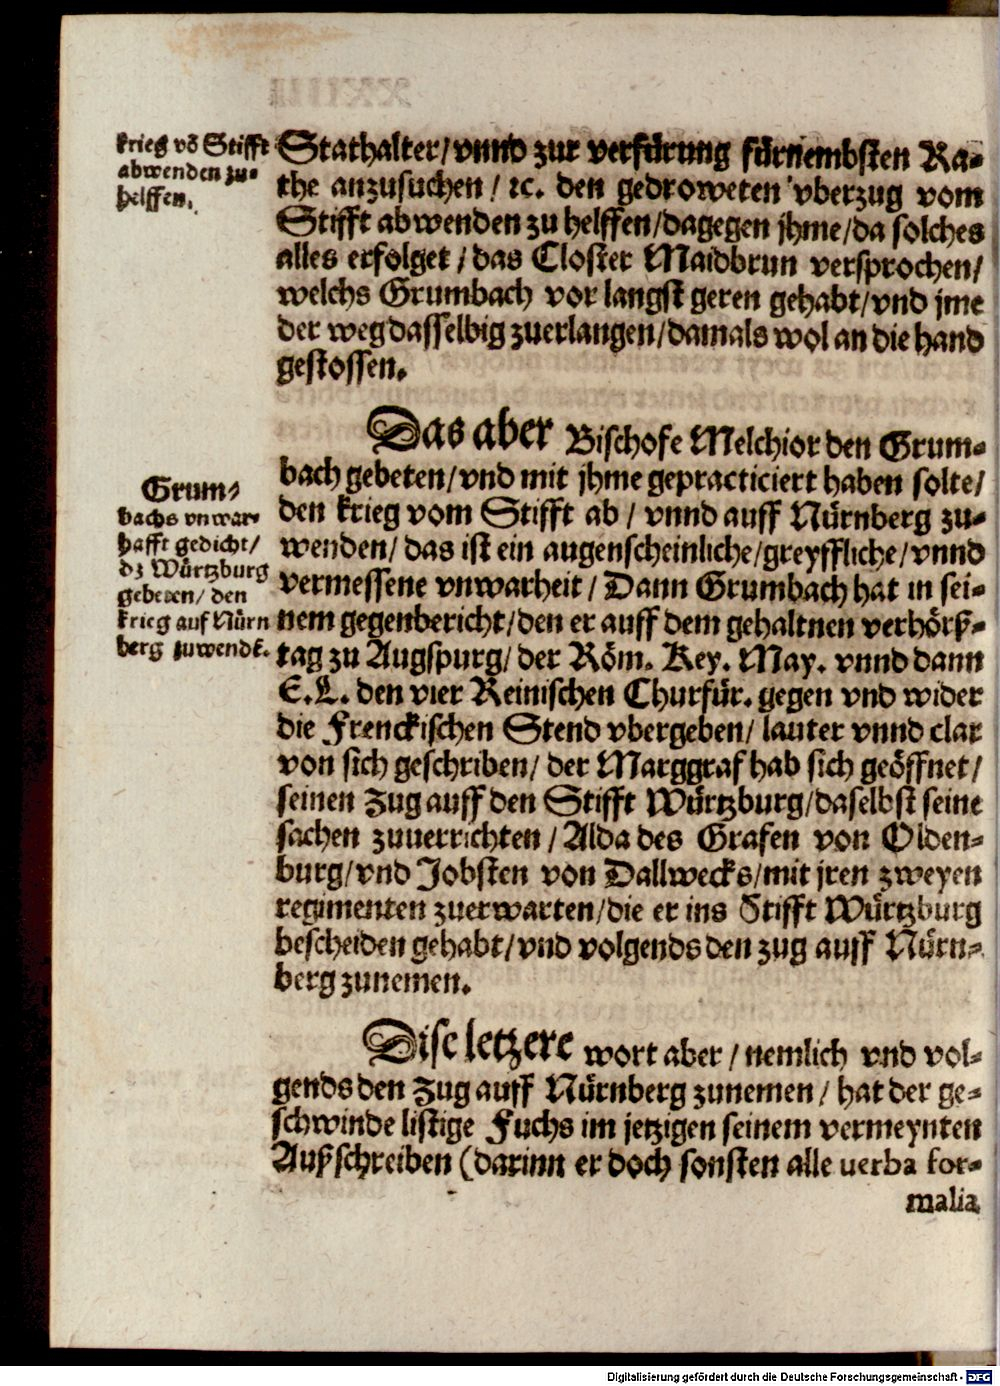 krieg võ Stifft
abwenden zu-
helffen.
Stathalter/vnnd zur verfürung fürnembsten Ra-
the anzusuchen/ ꝛc. den gedroweten vberzug vom
Stifft abwenden zu helffen/dagegen jhme/da solches
alles erfolget/das Closter Maidbrun versprochen/
welchs Grumbach vor langst geren gehabt/vnd jme
der weg dasselbig zuerlangen/damals wol an die hand
gestossen.
Das aber Bischofe Melchior den Grum-
bach gebeten/vnd mit jhme gepracticiert haben solte/
den krieg vom Stifft ab/ vnnd auff Nürnberg zu-
wenden/ das ist ein augenscheinliche/greyffliche/vnnd
vermessene vnwarheit/ Dann Grumbach hat in sei-
nem gegenbericht/den er auff dem gehaltnen verhörß-
tag zu Augspurg/ der Röm. Key. May. vnnd dann
E.L. den vier Reinischen Churfür. gegen vnd wider
die Frenckischen Stend vbergeben/ lauter vnnd clar
von sich geschriben/ der Marggraf hab sich geöffnet/
seinen Zug auff den Stifft Würtzburg/daselbst seine
sachen zuuerrichten/Alda des Grafen von Olden-
burg/vnd Jobsten von Dallwecks/mit jren zweyen
regimenten zuerwarten/die er ins Stifft Würtzburg
bescheiden gehabt/vnd volgends den zug auff Nürn-
berg zunemen.
Grum-
bachs vnwar-
hafft gedicht/
dz Würtzburg
gebeten/ den
krieg auf Nürn
berg zuwendẽ.
Dise letzere wort aber/ nemlich vnd vol-
gends den Zug auff Nürnberg zunemen/ hat der ge-
schwinde listige Fuchs im jetzigen seinem vermeynten
Außschreiben (darinn er doch sonsten alle verba for-
malia
Digitalisierung gefördert durch die Deutsche Forschungsgemeinschaft - DFG